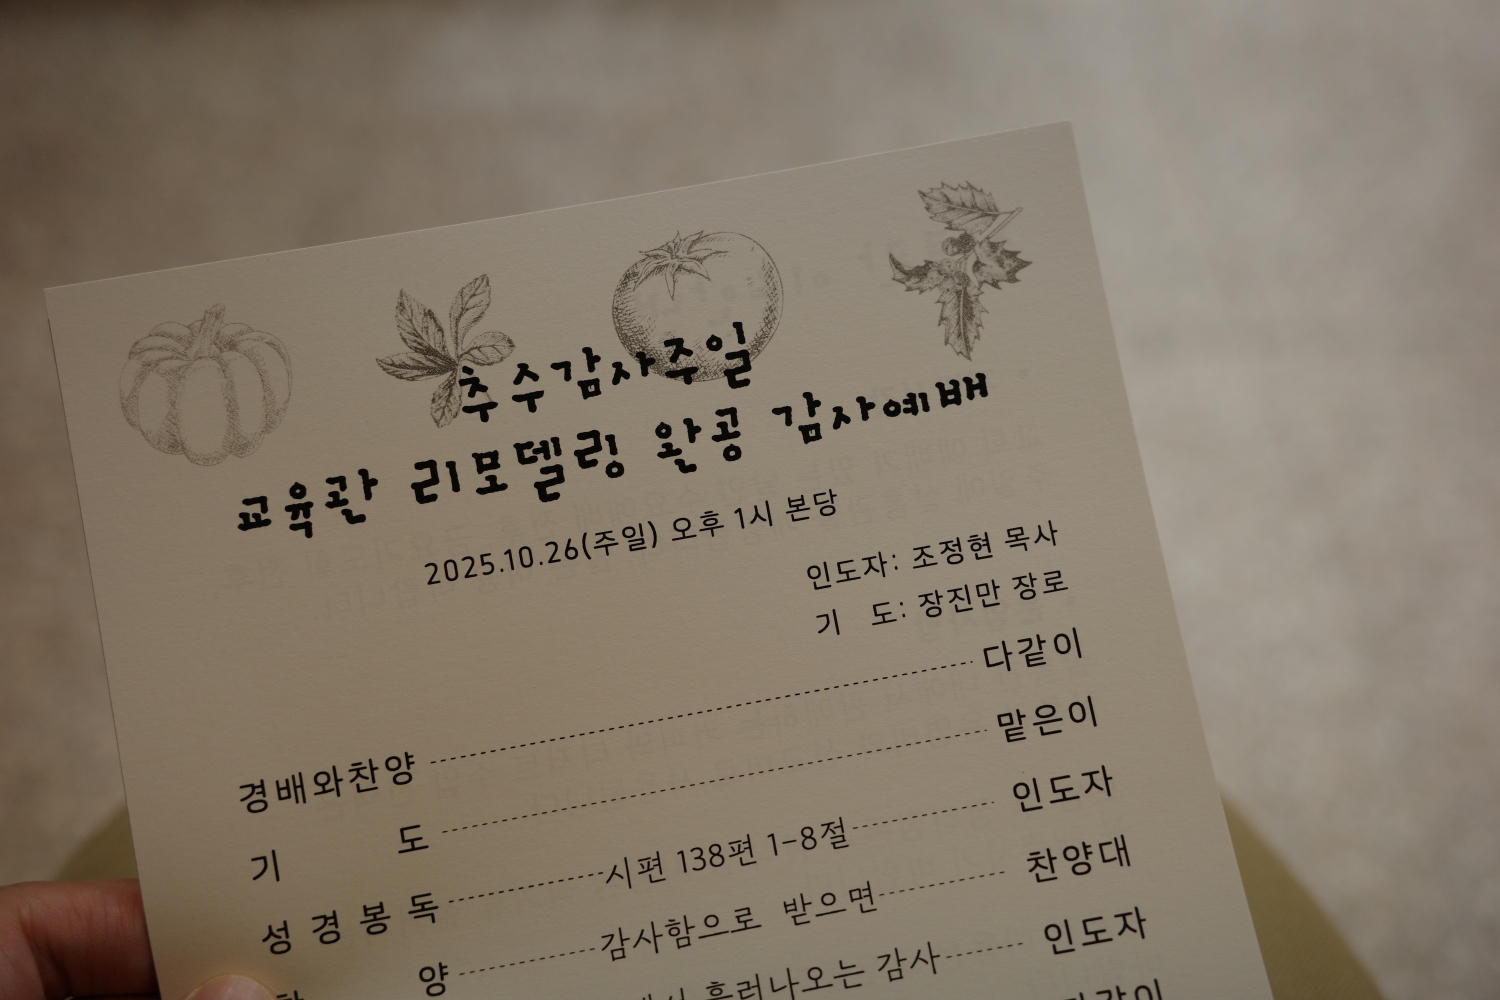 추수감사주일
교육관 리모델링 완공 감사예배
2025.10.26(주일) 오후 1시 본당
인도자: 조정현 목사
기 도: 장진만 장로
경배와찬양 다같이
기 도 맡은이
성 경 봉 독 시편 138편 1-8절 인도자
찬 양 감사함으로 받으면 찬양대
흘러나오는 감사 인도자
다같이